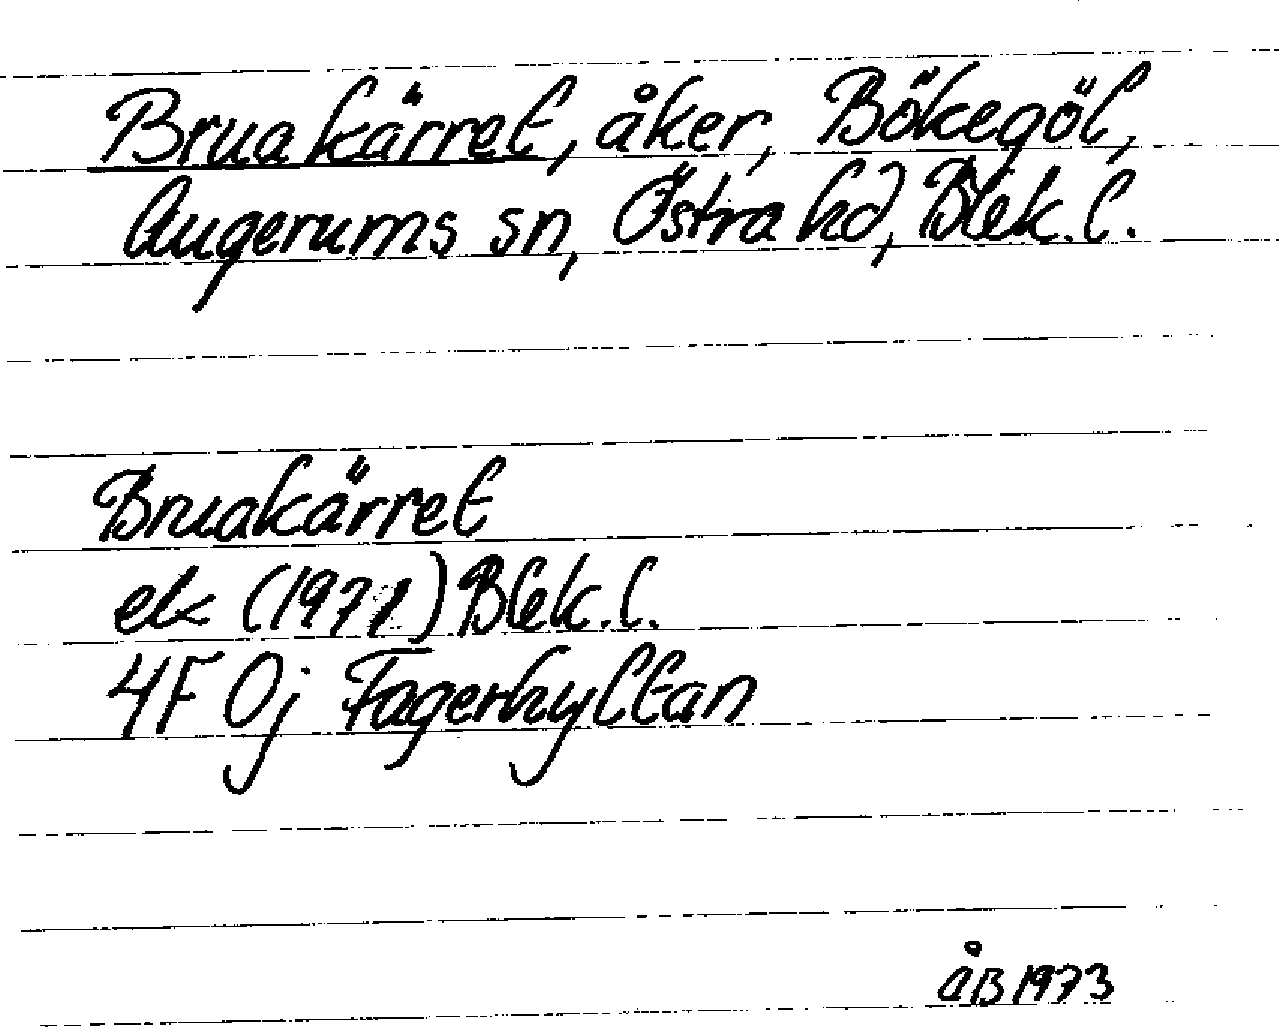 Bruakärret, åker, Bökegöl,
Augerums sn, Östra hd, Blek. l.
Bruakärret
ek (1971) Blek. l.
4F 0j Fagerhyltan
ÅB 1973